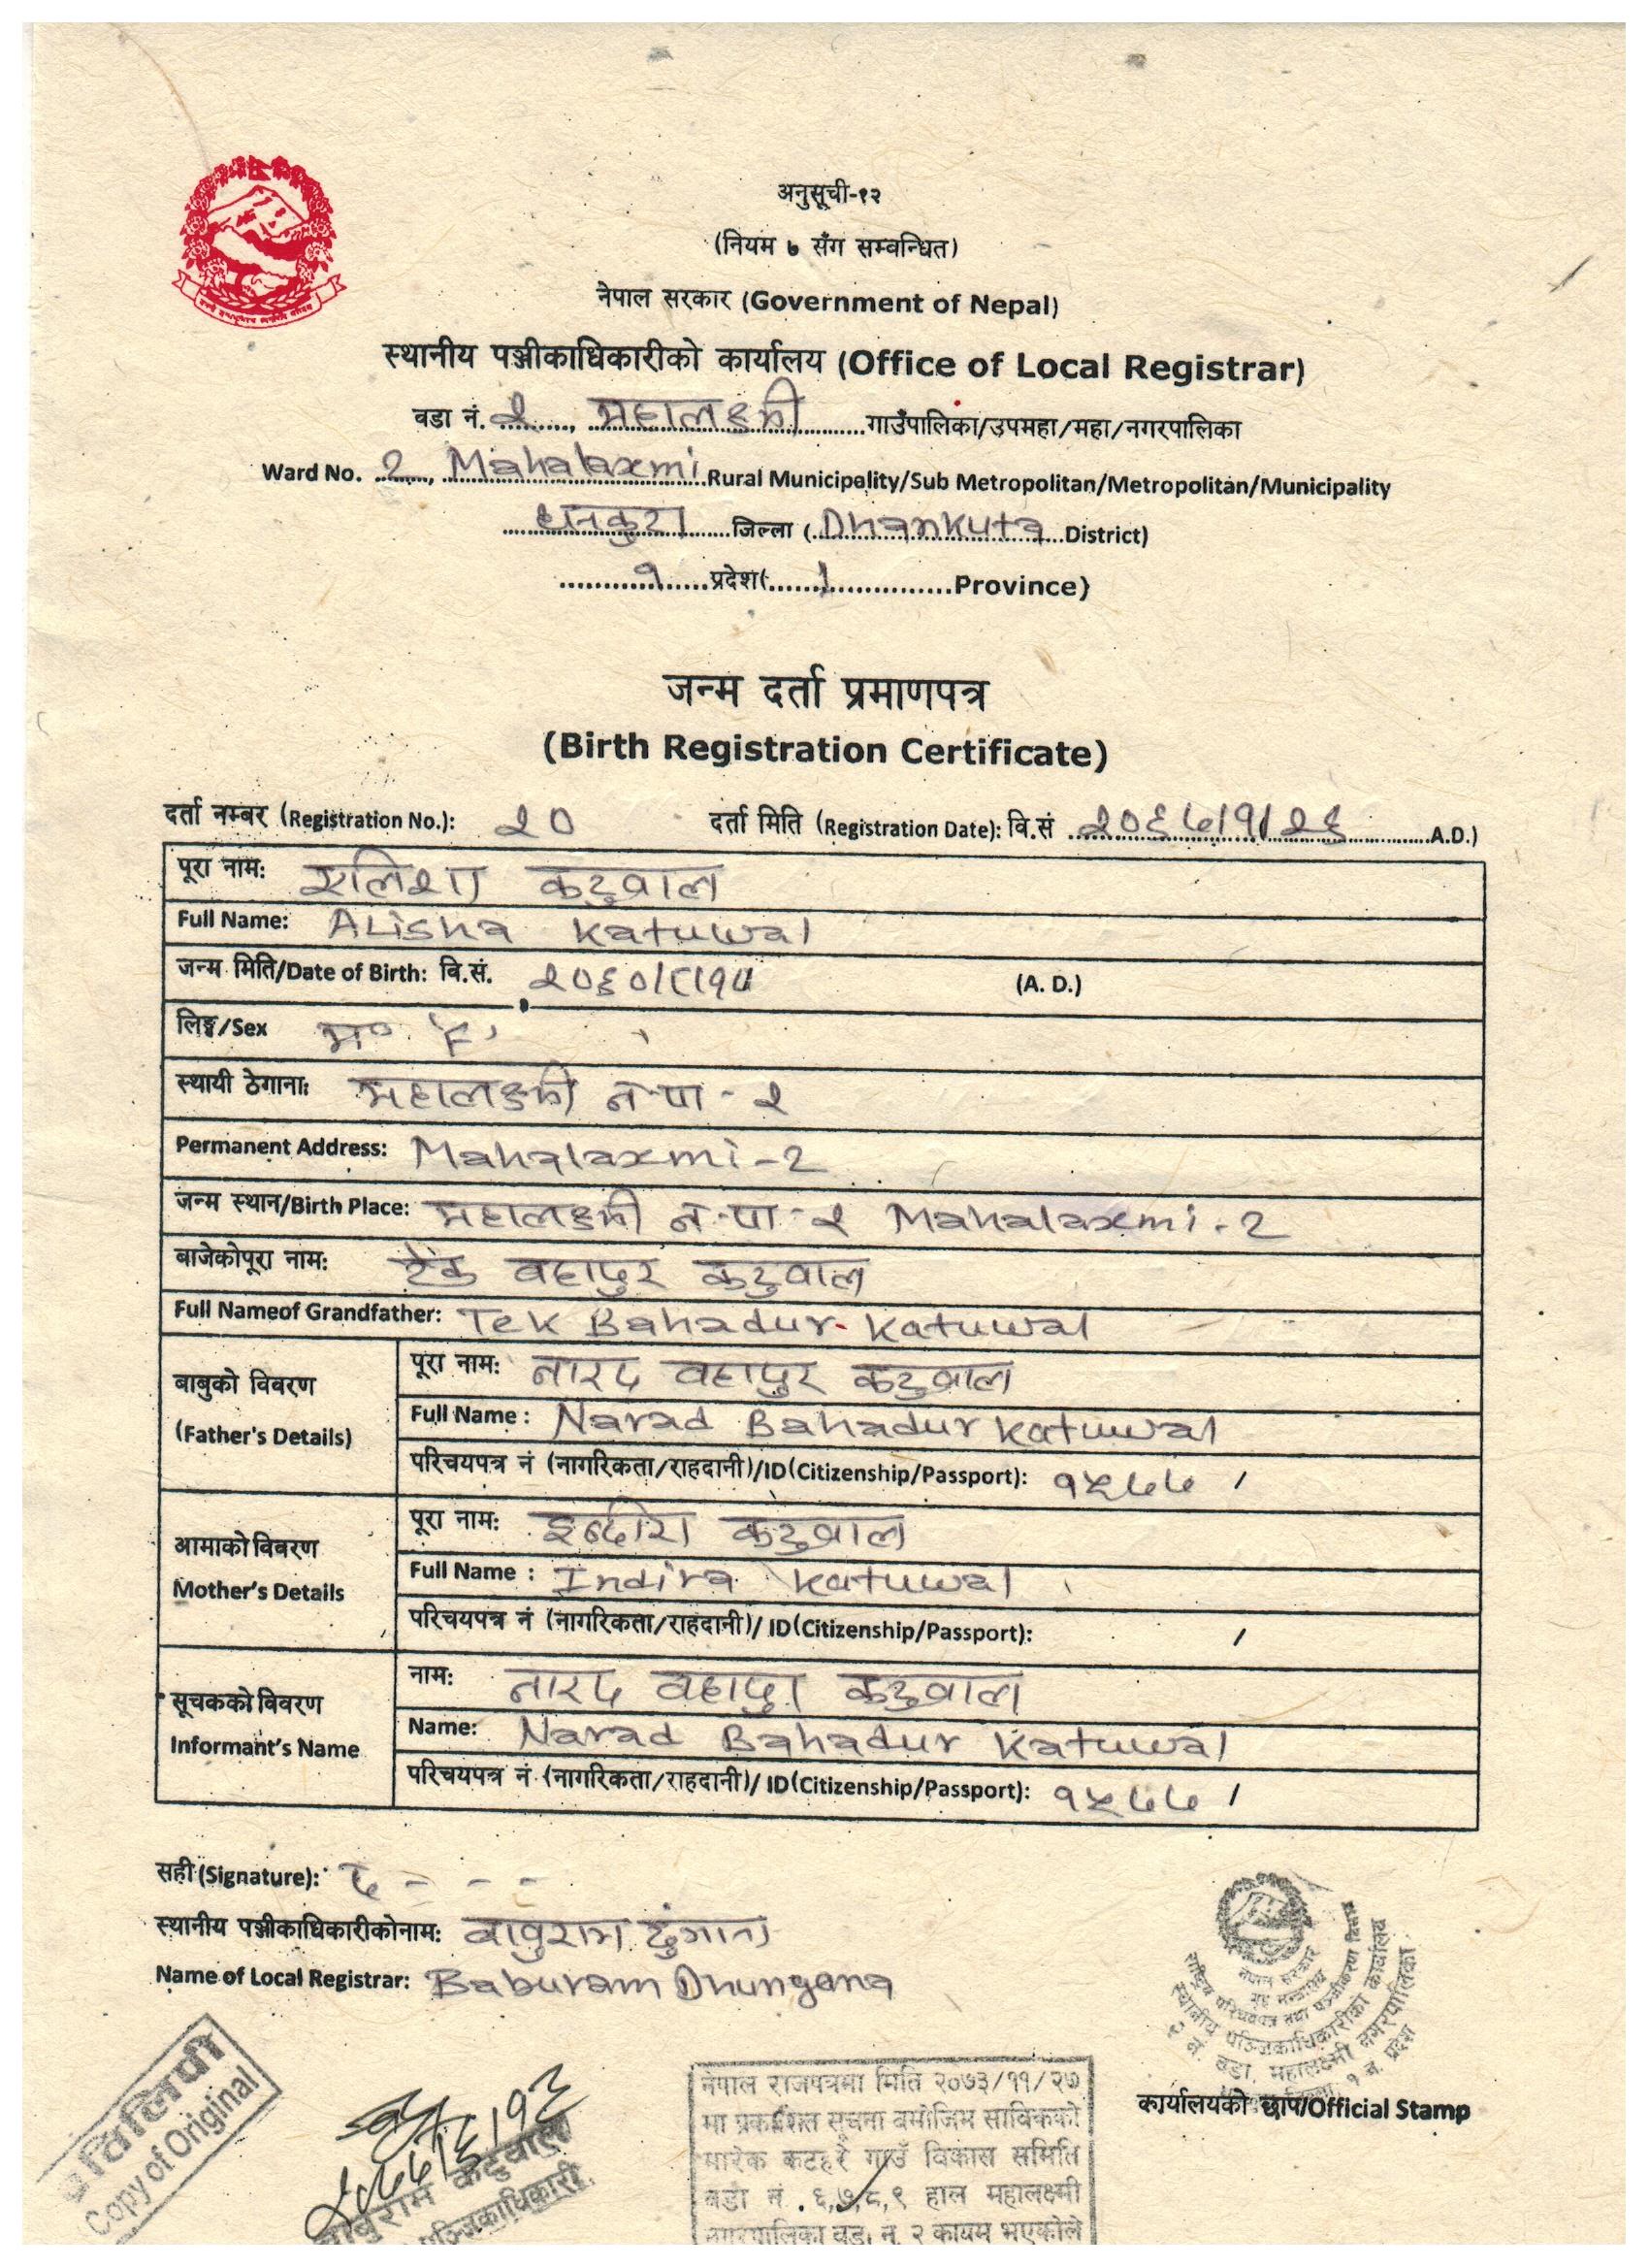 अनुसूची-१२
(नियम ७ सँग सम्बन्धित)
नेपाल सरकार (Government of Nepal)
स्थानीय पञ्जीकाधिकारीको कार्यालय (Office of Local Registrar)
वडा नं. २, महालक्ष्मी गाउँपालिका/उपमहा/महा/नगरपालिका
Ward No. 2, Mahalaxmi Rural Municipality/Sub Metropolitan/Metropolitan/Municipality
धनकुटा जिल्ला (Dhankuta District)
१ प्रदेश(1 Province)
जन्म दर्ता प्रमाणपत्र
(Birth Registration Certificate)
दर्ता नम्बर (Registration No.): २० दर्ता मिति (Registration Date): वि.सं २०६७/१/२६ A.D.)
पूरा नाम: एलिशा कटुवाल
Full Name: Alisha Katuwal
जन्म मिति/Date of Birth: वि.सं. २०६०/८/१५ (A. D.)
लिङ्ग/Sex म० 'F'
स्थायी ठेगाना: महालक्ष्मी न.पा - २
Permanent Address: Mahalaxmi - 2
जन्म स्थान/Birth Place: महालक्ष्मी न.पा - २ Mahalaxmi - 2
बाजेकोपूरा नाम: टेक बहादुर कटुवाल
Full Nameof Grandfather: Tek Bahadur Katuwal
बाबुको विवरण
(Father's Details)
पूरा नाम: नारद बहादुर कटुवाल
Full Name : Narad Bahadur Katuwal
परिचयपत्र नं (नागरिकता/राहदानी)/ID(Citizenship/Passport): १५७७ /
आमाको विवरण
Mother's Details
पूरा नाम: इन्दीरा कटुवाल
Full Name : Indira Katuwal
परिचयपत्र नं (नागरिकता/राहदानी)/ ID(Citizenship/Passport): /
सूचकको विवरण
Informant's Name
नाम: नारद बहादुर कटुवाल
Name: Narad Bahadur Katuwal
परिचयपत्र नं (नागरिकता/राहदानी)/ ID(Citizenship/Passport): १५७७ /
सही (Signature): द - - -
स्थानीय पञ्जीकाधिकारीकोनाम: बाबुराम ढुंगाना
Name of Local Registrar: Baburam Dhungana
नेपाल सरकार
गृह मन्त्रालय
राष्ट्रिय परिचयपत्र तथा पञ्जीकरण विभाग
स्थानीय पञ्जिकाधिकारीको कार्यालय
२ नं. वडा, महालक्ष्मी नगरपालिका
१ नं. प्रदेश
कार्यालयको छाप/Official Stamp
प्रतिलिपी
Copy of Original
बाबुराम कटुवाल
पञ्जिकाधिकारी
नेपाल राजपत्रमा मिति २०७३/११/२७
मा प्रकाशित सूचना बमोजिम साविकको
मारेक कटहरे गाउँ विकास समिति
वडा नं. ६,७,८,९ हाल महालक्ष्मी
नगरपालिका वडा नं. २ कायम भएकोले